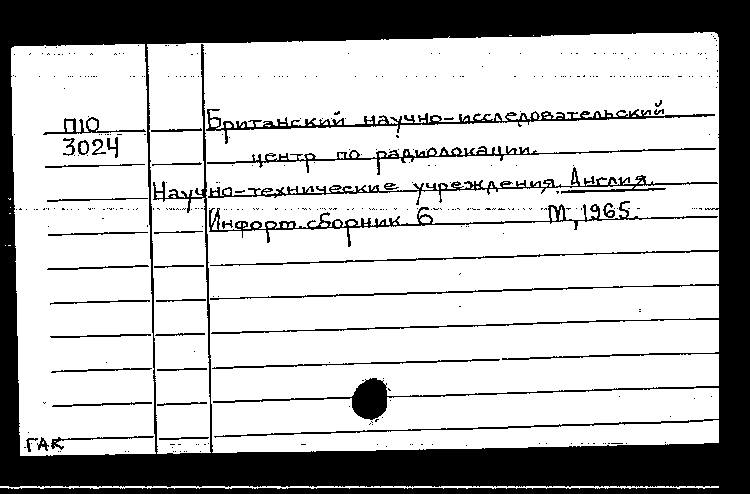 П10
3024
Британский научно-исследовательский
центр по радиолокации.
Научно-технические учреждения. Англия.
Информ. сборник 6 М, 1965.
ГАК